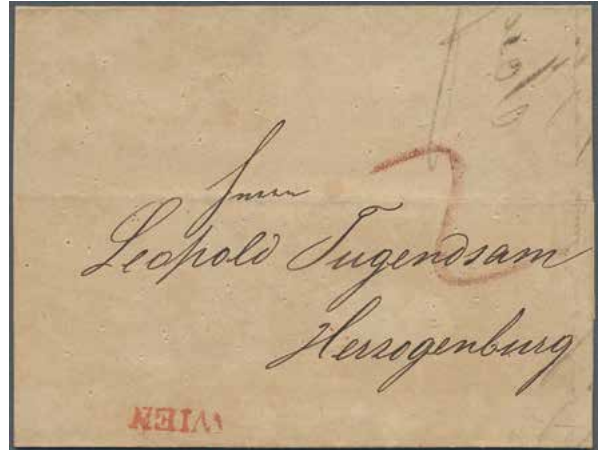 Herrn
Leopold Tugendsam
Herzogenburg
2
WIEN